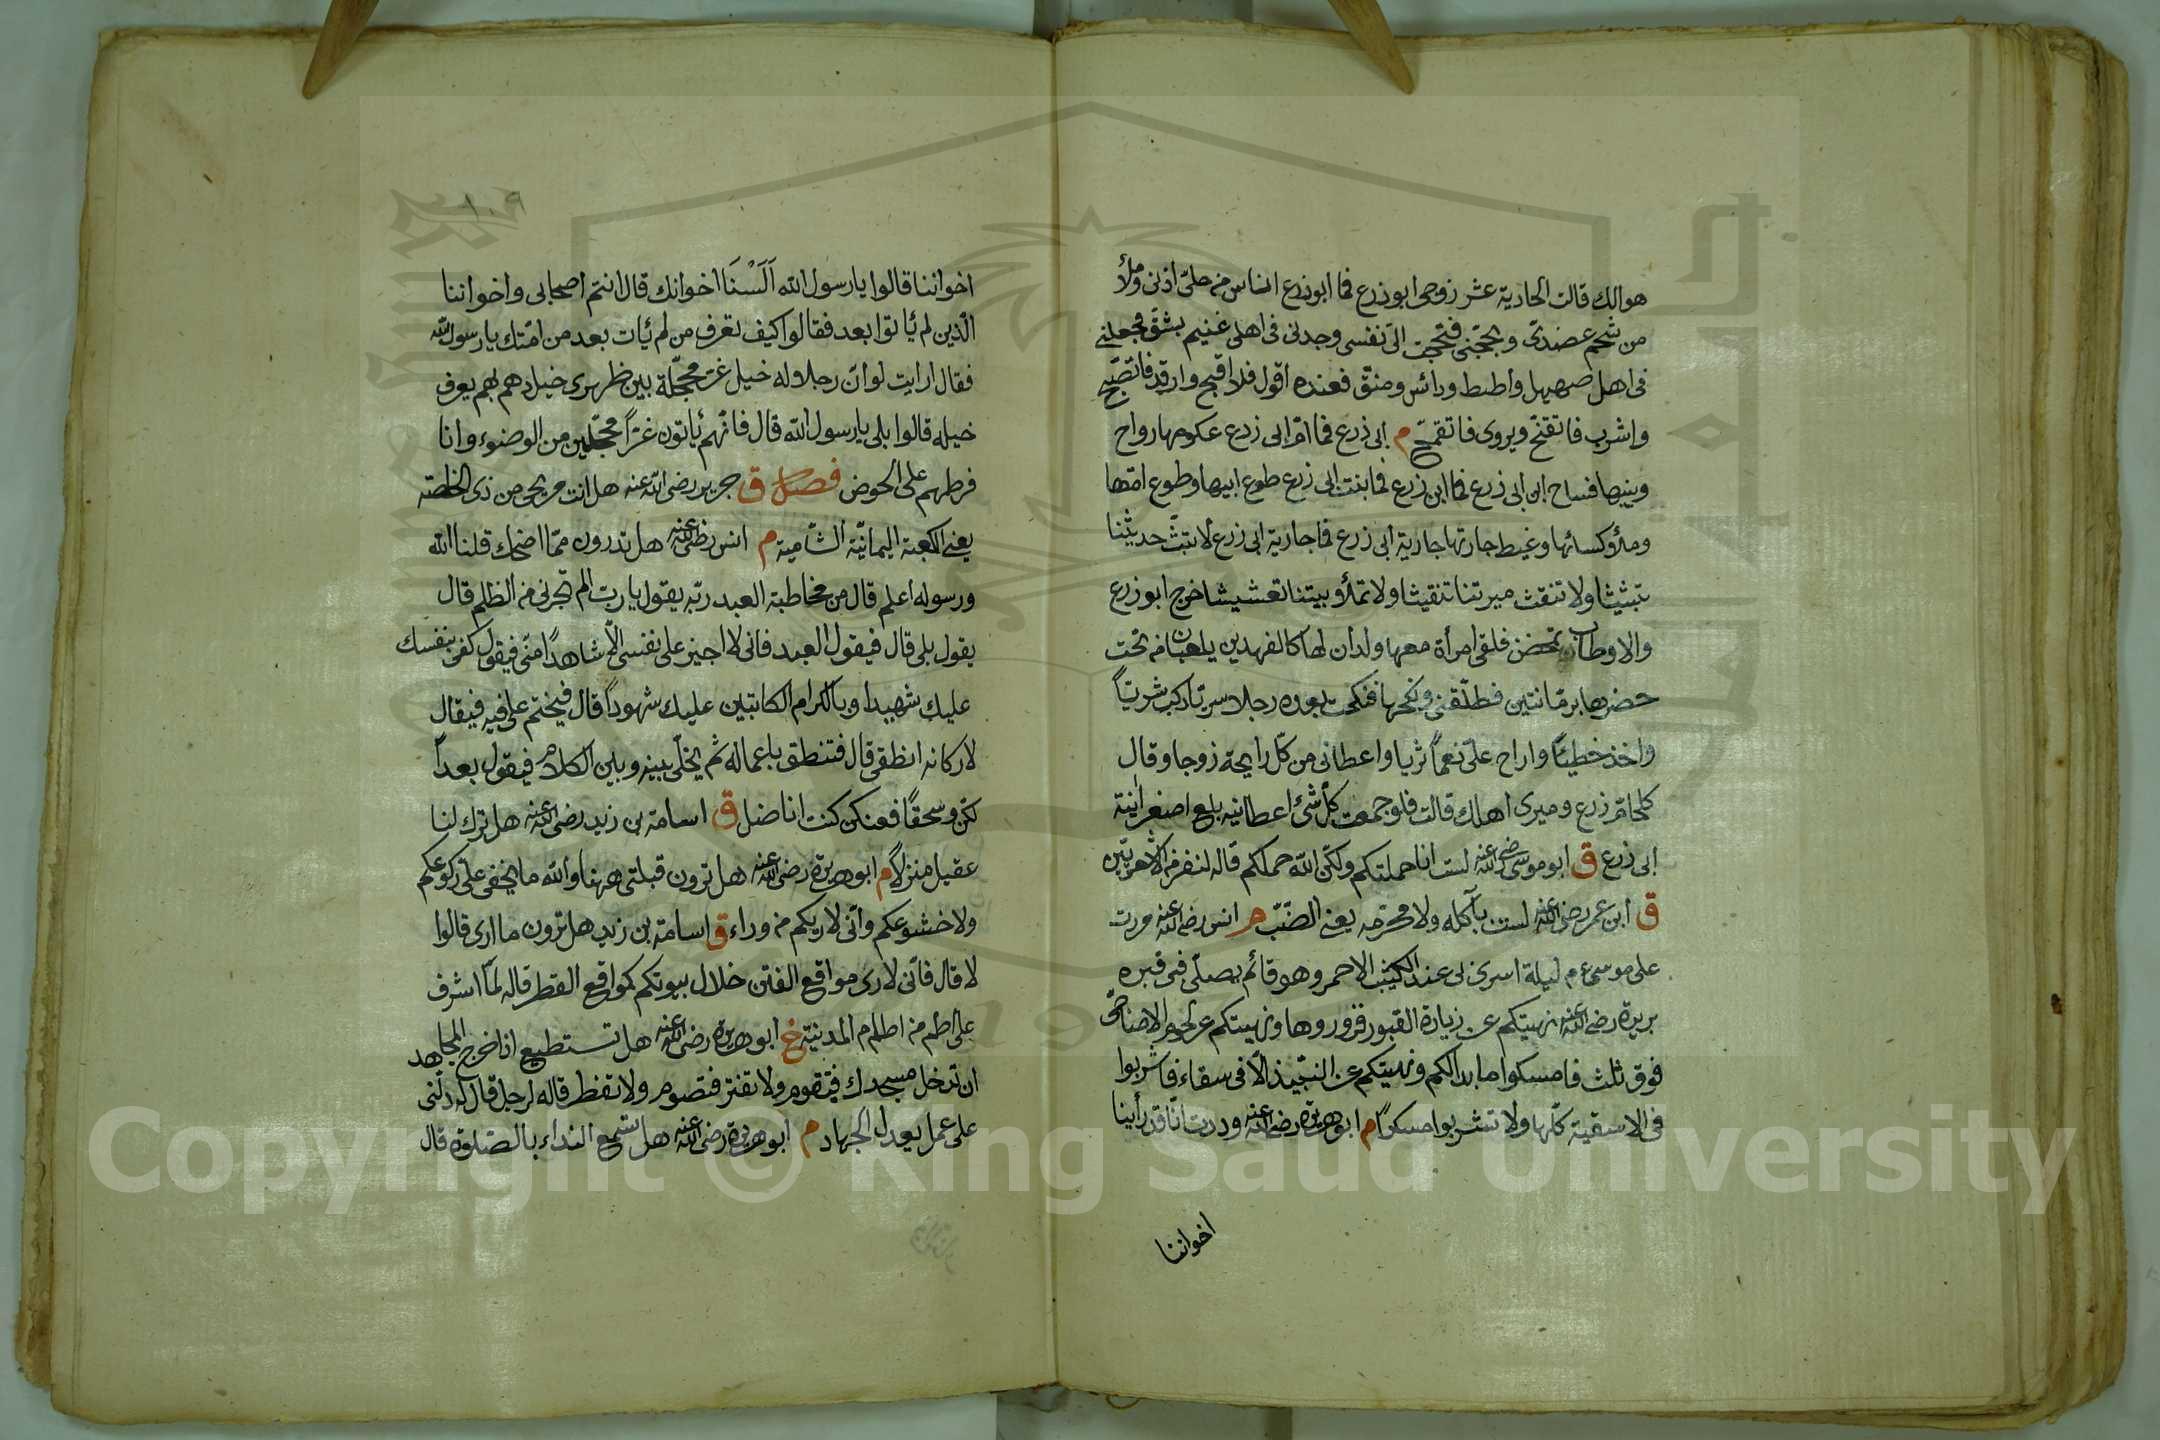 هوالك قالت الحادية عشر زوجى ابوزرع فما ابوزرع اناس من حلىّ اذنى وملأ
من شحم عضدىّ وبجّحنى فبجحت الىّ نفسى وجدنى فى اهل غنيم بشقّ فجعلنى
فى اهل صهيل واطيط ودائس ومنقّ فعنده اقول فلا اقبح وارقد فاتصبّح
واشرب فاتقنح ويروى فاتقمح م ابى زرع فما امّ ابى زرع عكومها رداح
وبيتها فساح ابن ابى زرع فما ابن زرع فما بنت ابى زرع طوع ابيها وطوع امّها
وملؤ كسائها وغيظ جارتها جارية ابى زرع فما جارية ابى زرع لا تبثّ حديثنا
تبثيثا ولا تنقث ميرتنا تنقيثا ولا تملأ بيتنا تعشيشا خرج ابو زرع
والاوطاب تمخض فلقى امرأة معها ولدان لها كالفهدين يلعبان من تحت
خصرها برمّانتين فطلّقنى ونكحها فنكحت بعده رجلا سريّا ركب شريّاً
واخذ خطيّاً واراح علىّ نعماً ثريا واعطانى من كلّ رايحة زوجا وقال
كلى امّ زرع وميرى اهلك قالت فلو جمعت كلّ شئ اعطانيه ما بلغ اصغر انية
ابى زرع ق ابو موسى رضى الله عنه لست انا حملتكم ولكنّ الله حملكم قاله لنفر من الاشعريّين
ق ابن عمر رضى الله عنه لست بآكله ولا محرّمه يعنى الضّبّ م انس رضى الله عنه مررت
على موسى عم ليلة اسرى بى عند الكثيب الاحمر وهو قائم يصلّى فى قبره
بريدة رضى الله عنه نهيتكم عن زيارة القبور فزوروها ونهيتكم عن لحوم الاضاحى
فوق ثلث فامسكوا ما بدالكم ونهيتكم عن النّبيذ الّا فى سقاء فاشربوا
فى الاسقية كلّها ولا تشربوا مسكراً م ابو هريرة رضى الله عنه وددت انّا قد رأينا
اخواننا
١٠٩
اخواننا قالوا يا رسول الله اَلَسْنَا اخوانك قال انتم اصحابى واخواننا
الّذين لم يأتوا بعد فقالوا كيف تعرف من لم يأت بعد من امّتك يا رسول الله
فقال ارايت لو انّ رجلا وله خيل غرّ محجّلة بين ظهرى خيل دهم بهم يعرف
خيله قالوا بلى يا رسول الله قال فانّهم يأتون غرّاً محجّلين من الوضوء وانا
فرطهم على الحوض فصل ق جرير رضى الله عنه هل انت مريحى من ذى الخلصة
يعنى الكعبة اليمانيّة الشّامية م انس رضى الله عنه هل تدرون ممّا اضحك قلنا الله
ورسوله اعلم قال من مخاطبة العبد ربّه يقول يا ربّ الم تجرنى من الظلم قال
يقول بلى قال فيقول العبد فانى لا اجيز على نفسى الّا شاهداً منّى فيقول كفى بنفسك
عليك شهيدا وبالكرام الكاتبين عليك شهوداً قال فيختم على فيه فيقال
لاركانه انطقى قال فتنطق باعماله ثم يخلّى بينه وبين الكلام فيقول بعداً
لكنّ وسحقاً فعنكنّ كنت اناضل ق اسامة بن زيد رضى الله عنه هل ترك لنا
عقيل منزلاً م ابو هريرة رضى الله عنه هل ترون قبلتى ههنا والله ما يخفى علىّ ركوعكم
ولا خشوعكم وانّى لاريكم من وراء ق اسامة بن زيد هل ترون ما ارى قالوا
لا قال فانّى لارى مواقع الفتن خلال بيوتكم كمواقع القطر قاله لمّا اشرف
على اطم من اطام المدينة خ ابو هريرة رضى الله عنه هل تستطيع اذا خرج المجاهد
ان تدخل مسجدك فتقوم ولا تفتر فتصوم ولا تفطر قاله لرجل قال له دلّنى
على عمل يعدل الجهاد م ابو هريرة رضى الله عنه هل تسمع النداء بالصّلوة قال
Copyright © King Saud University